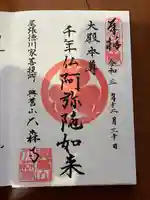 奉拝 令和二年十二月二十日
大殿本尊
千年仏阿弥陀如来
尾張徳川家菩提所
興舊山大森寺